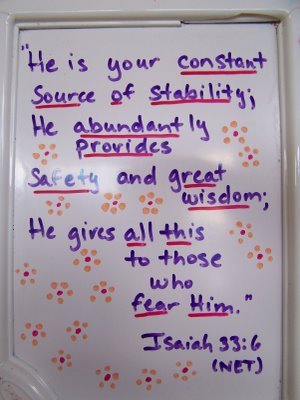 "He is your constant
Source of stability;
He abundantly
provides
Safety and great
wisdom;
He gives all this
to those
who
fear Him."
Isaiah 33:6
(NET)